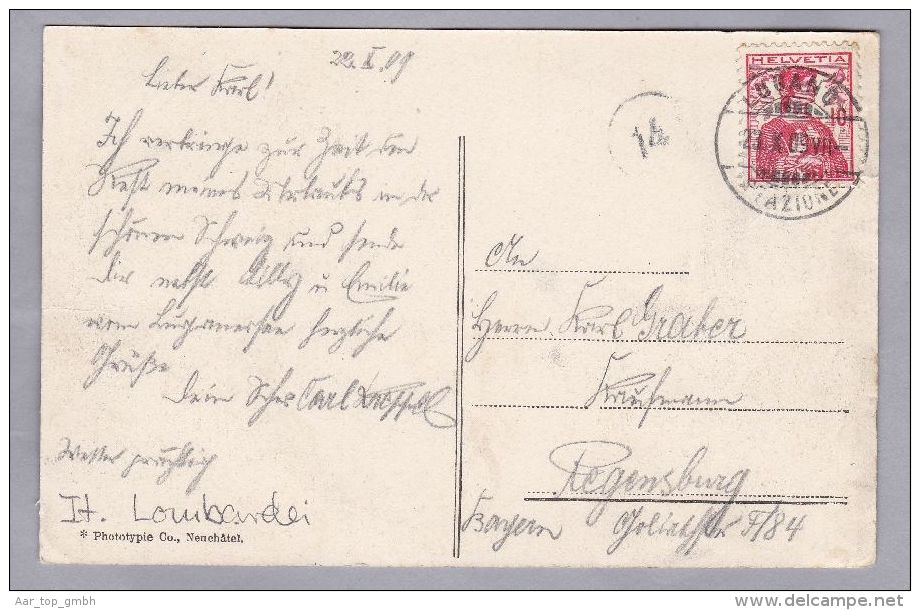 22.X.09
Lieber Karl!
Ich verbringe zur Zeit den
Rest meines Urlaubs in der
schönen Schweiz und sende
Dir nebst Lilly u Emilie
vom Luganersee herzliche
Grüße
Dein Carl
Wetter prächtig
It. Lombardei
* Phototypie Co., Neuchâtel.
14
HELVETIA
10
LUGANO
STAZIONE
An
Herrn Karl Graber
Kaufmann
Regensburg
Bayern Goliathstr F/84
Aar_top_gmbh
delcampe.net